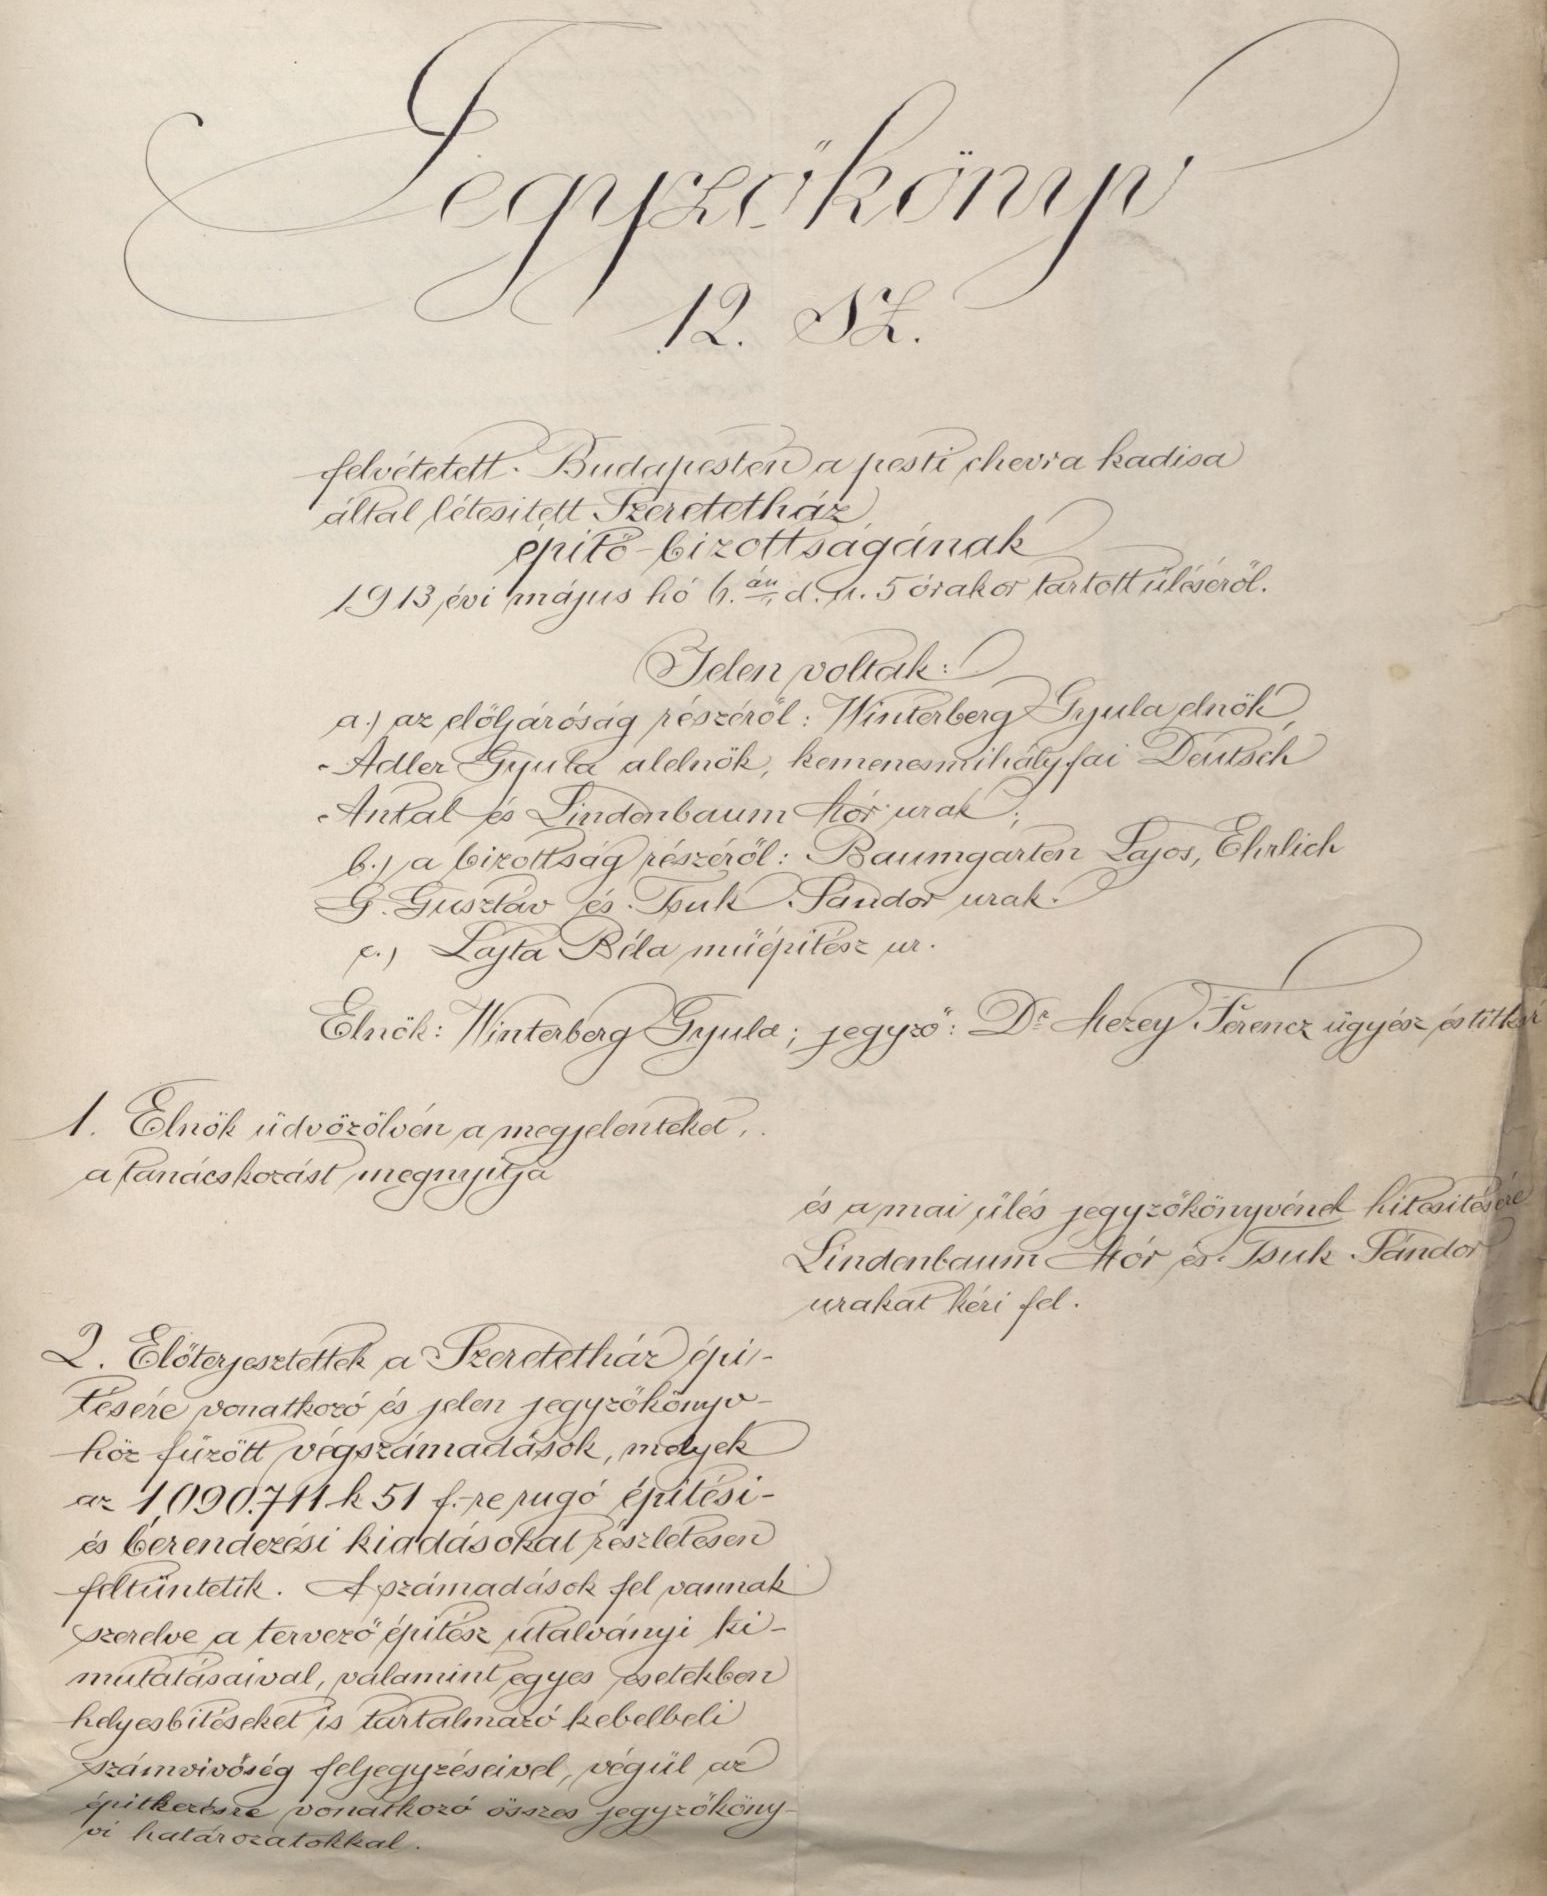 Jegyzőkönyv
12. SZ.
felvétetett Budapesten a pesti chevra kadisa
által létesitett Szeretetház
épitő-bizottságának
1913 évi május hó 6.án d. u. 5 órakor tartott üléséről.
Jelen voltak:
a.) az elöljáróság részéről: Winterberg Gyula elnök,
Adler Gyula alelnök, kemenesmihályfai Deutsch
Antal és Lindenbaum Mór urak;
b.) a bizottság részéről: Baumgarten Lajos, Ehrlich
G. Gusztáv és Tsuk Sándor urak.
c.) Lajta Béla müépitész ur.
Elnök: Winterberg Gyula; jegyző: Dr Mezey Ferencz ügyész és titkár
1. Elnök üdvözölvén a megjelenteket,
a tanácskozást megnyitja
és a mai ülés jegyzőkönyvének hitesitésére
Lindenbaum Mór és Tsuk Sándor
urakat kéri fel.
2. Előterjesztettek a Szeretetház épi-
tésére vonatkozó és jelen jegyzőkönyv-
höz füzött végszámadások, melyek
az 1,090.711 k 51 f.-re rugó épitési-
és berendezési kiadásokat részletesen
feltüntetik. A számadások fel vannak
szerelve a tervező épitész utalványi ki-
mutatásaival, valamint egyes esetekben
helyesbitéseket is tartalmazó kebelbeli
számvivőség feljegyzéseivel, végül az
épitkezésre vonatkozó összes jegyzőköny-
vi határozatokkal.